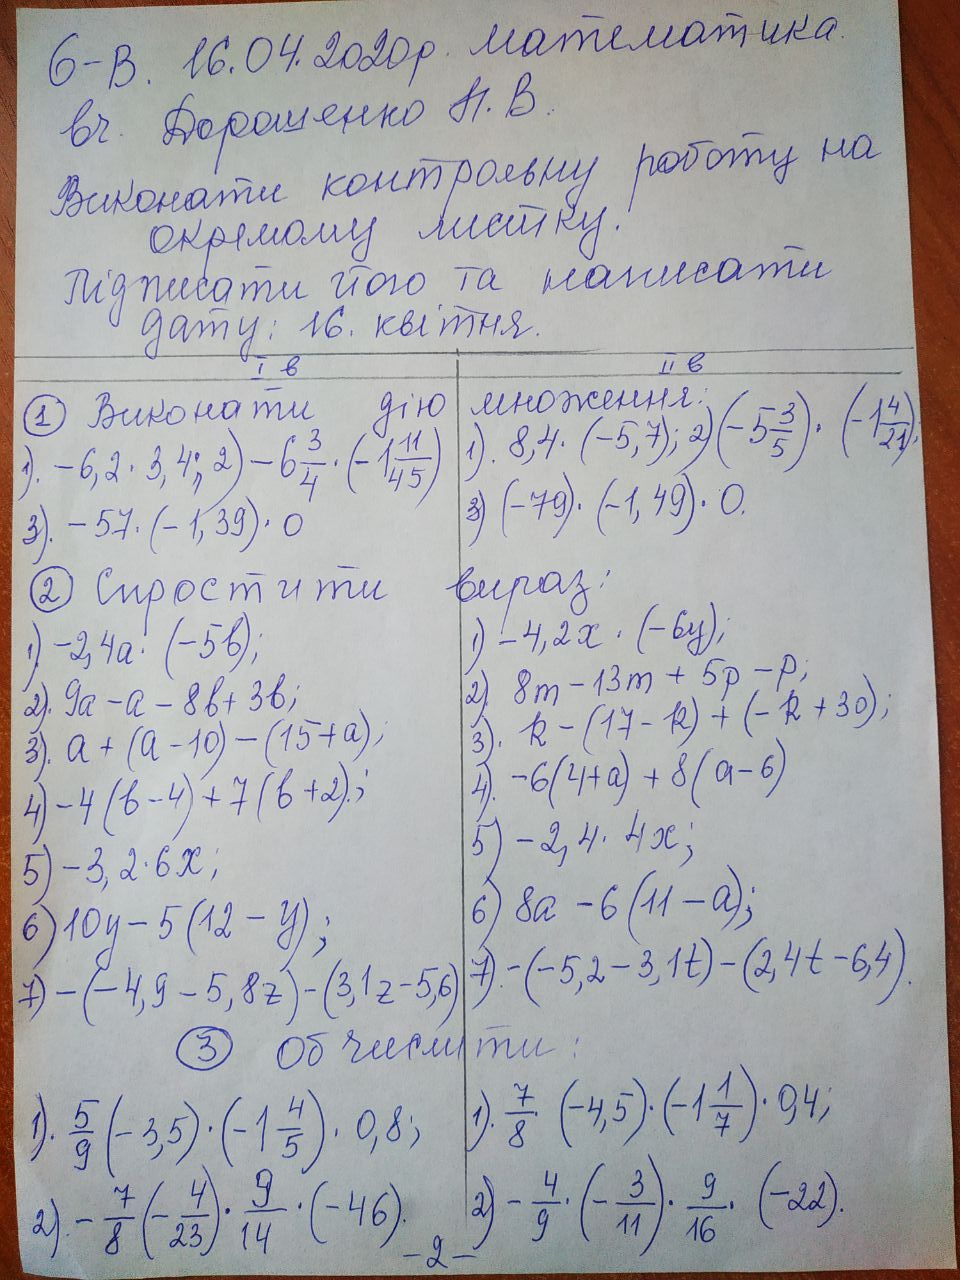 6-В. 16.04.2020р. Математика.
вч. Дорошенко Н. В.
Виконати контрольну роботу на
окремому листку!
Підписати його та написати
дату: 16. квітня.
І в
ІІ в
① Виконати дію множення:
1). -6,2 · 3,4; 2) -6 3/4 · (-1 11/45)
3). -57 · (-1,39) · 0
1). 8,4 · (-5,7); 2) (-5 3/5) · (-1 4/21);
3) (-79) · (-1,49) · 0.
② Спростити вираз:
1) -2,4a · (-5b);
2). 9a - a - 8b + 3b;
3). a + (a - 10) - (15 + a);
4) -4(b - 4) + 7(b + 2).;
5) -3,2 · 6x;
6) 10y - 5(12 - y);
7) -(-4,9 - 5,8z) - (3,1z - 5,6)
1) -4,2x · (-6y);
2). 8m - 13m + 5p - p;
3). k - (17 - k) + (-k + 30);
4). -6(4 + a) + 8(a - 6)
5) -2,4 · 4x;
6) 8a - 6(11 - a);
7). -(-5,2 - 3,1t) - (2,4t - 6,4).
③ Обчислити:
1). 5/9 (-3,5) · (-1 4/5) · 0,8;
2). -7/8 (-4/23) · 9/14 · (-46).
1). 7/8 · (-4,5) · (-1 1/7) · 0,4;
2) -4/9 · (-3/11) · 9/16 · (-22).
-2-